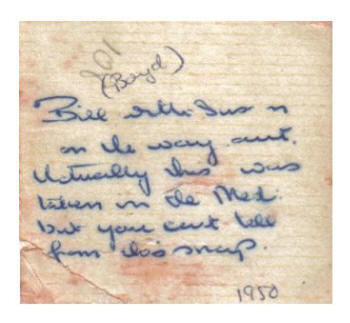 (Boyd)
Bill
on the way out.
Actually this was
taken in the Med.
but you can't tell
from this snap.
1950